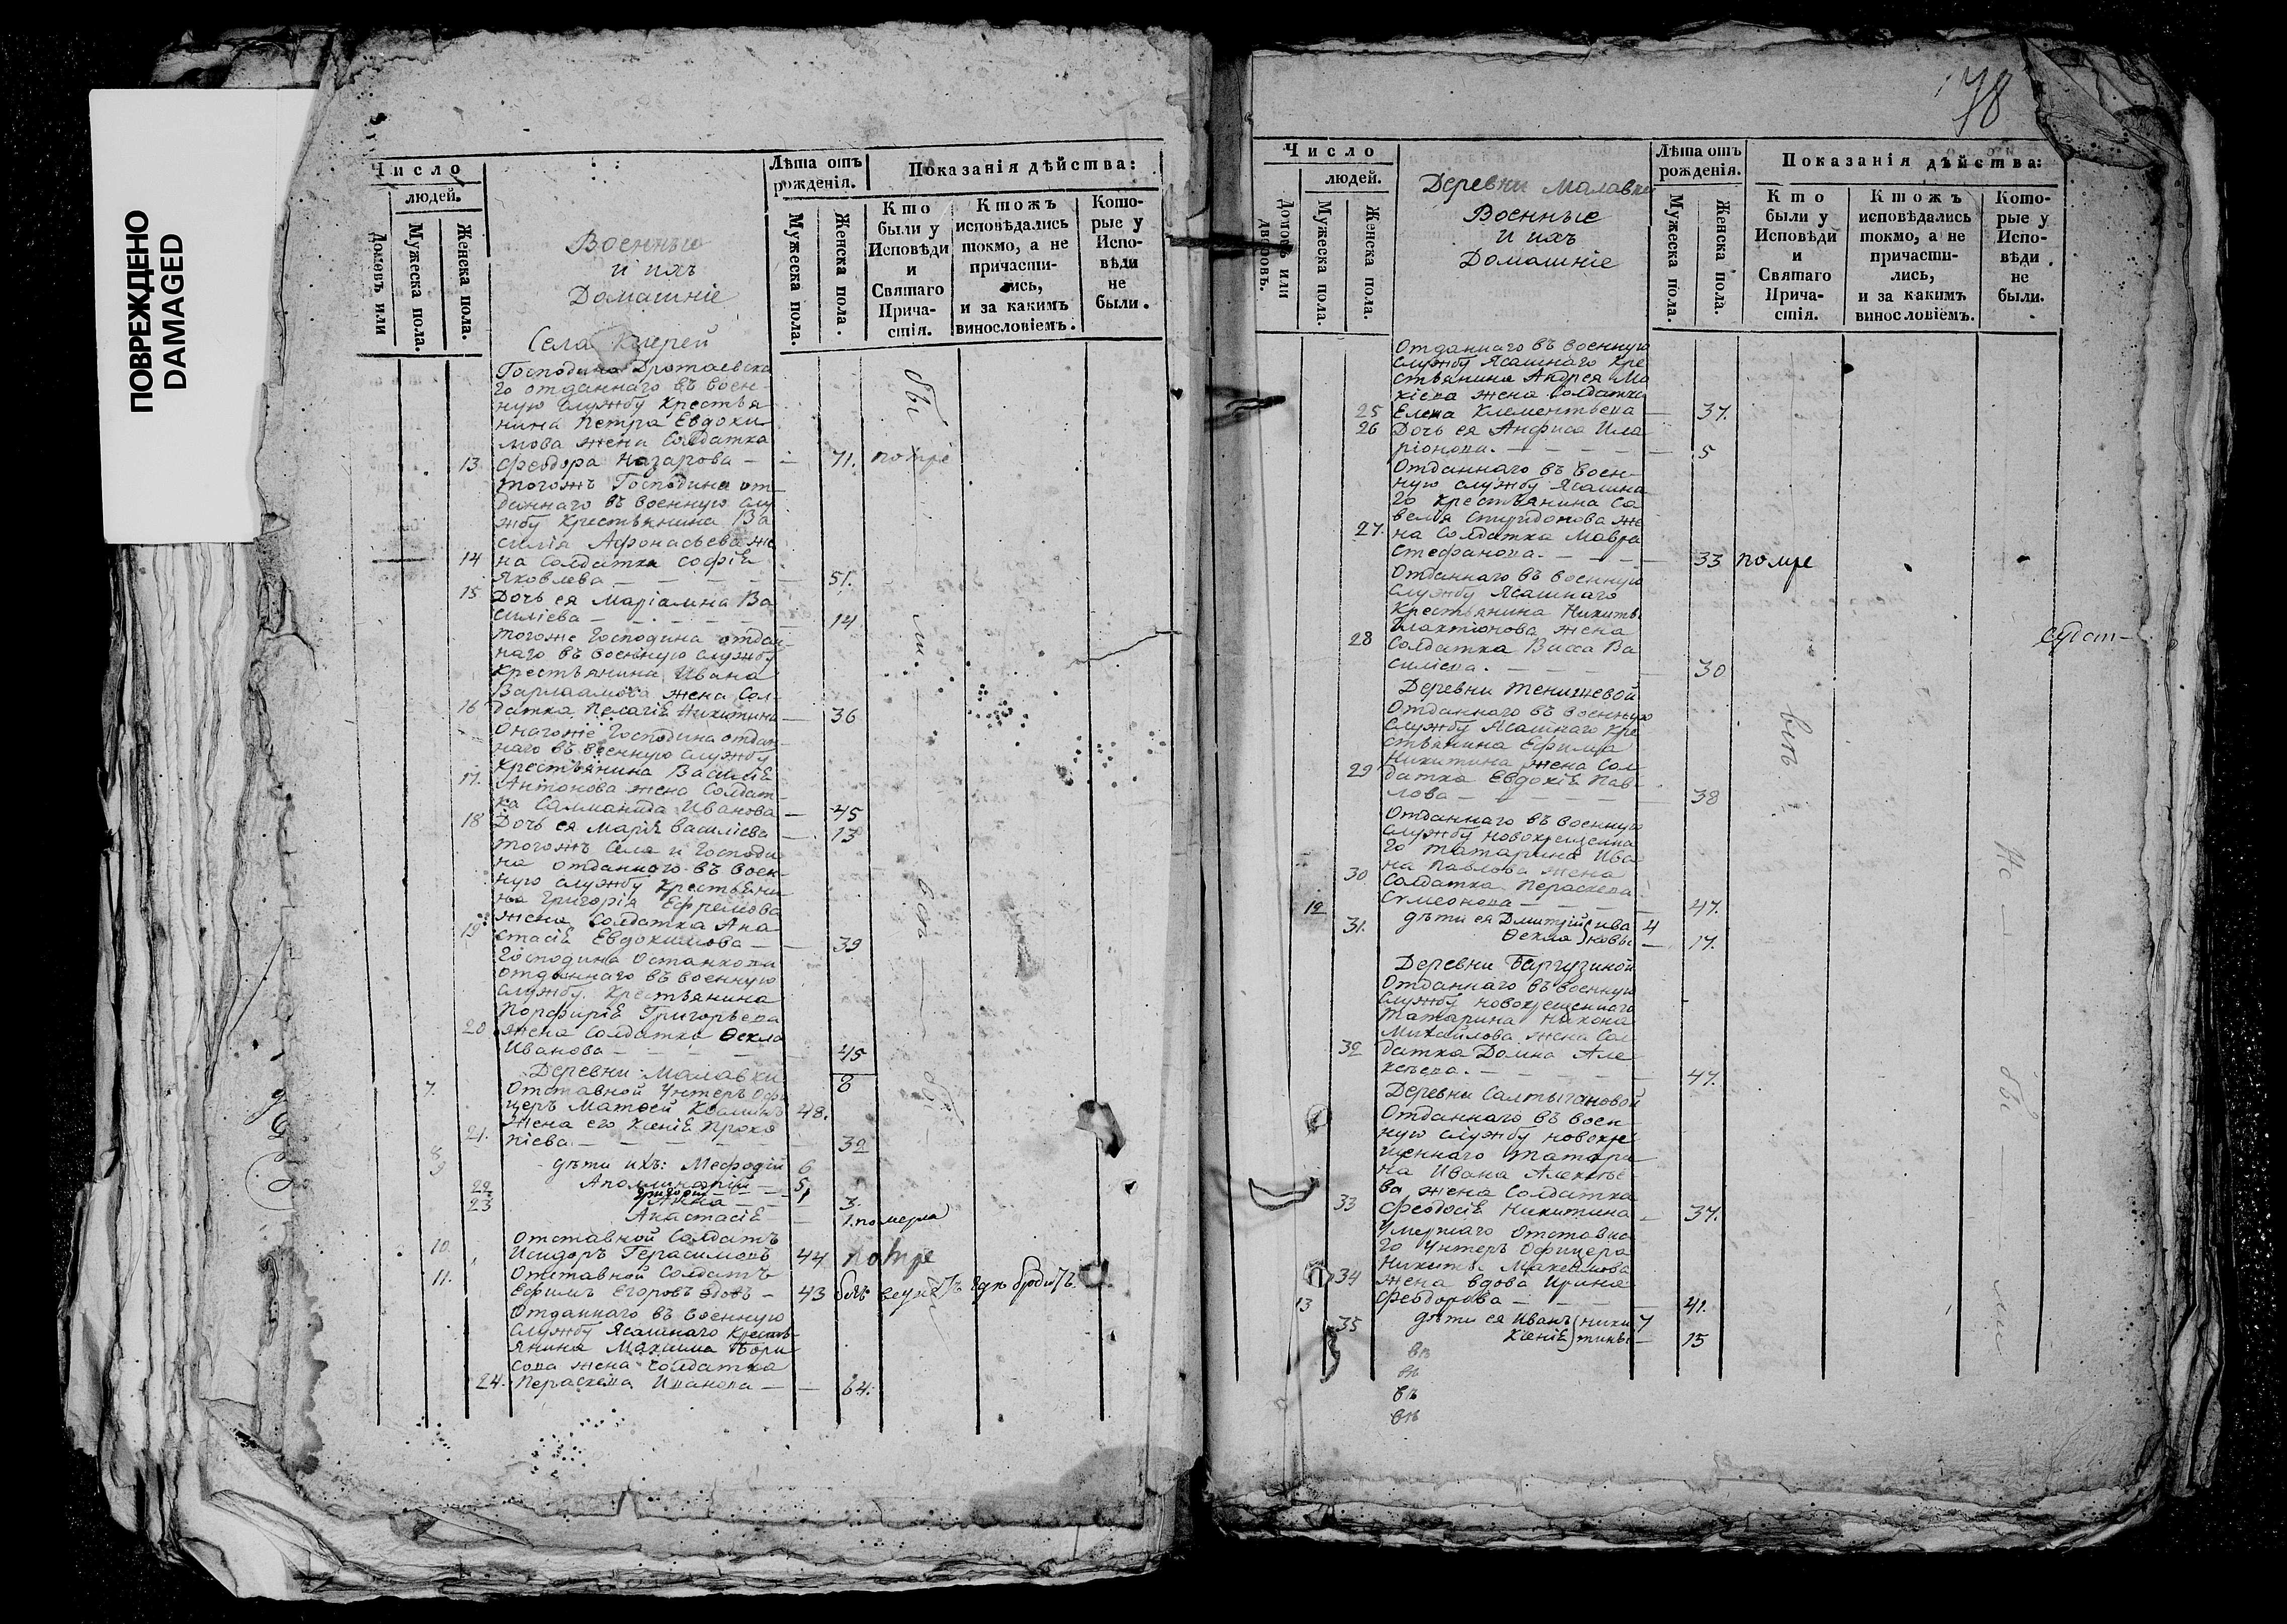 ПОВРЕЖДЕНО
DAMAGED
Число
людей.
Домовъ или
Мужеска пола.
Женска пола.
Военныя
и ихъ
Домашніе
Лѣта отъ
рожденія.
Мужеска пола.
Женска пола.
Показанія дѣйства:
Кто
были у
Исповѣди
и
Святаго
Прича-
стія.
Ктожъ
исповѣдались
токмо, а не
причасти-
лись,
и за какимъ
винословіемъ.
Кото-
рые у
Испо-
вѣди
не
были.
Села
Господина
го отданнаго въ воен-
ную службу крестья
нина Петра Евдоки
мова жена Солдатка
13 Феодора Назарова — 71.
тогожъ Господина от
даннаго въ военную слу
жбу Крестьянина Ва
силія Афонасьева же
14 на Солдатка Софія
Яковлева — 51.
15 Дочь ея Маріамна Ва
силіева — 14
тогоже Господина отдан
наго въ военную службу
Крестьянина Ивана
Варлаамова жена Сол-
16 датка Пелагія Никитина — 36
Онагоже Господина отдан-
наго въ военную службу
Крестьянина Василія
17. Антонова жена Солдат-
ка Саломанида Иванова — 45
18 Дочь ея Марія Василіева — 13
тогожъ Села и Господи
на отданного въ воен-
ную службу Крестьяни
на Григорія Ефремова
жена Солдатка Ана
19 стасія Евдокимова — 39
Господина Останкова
отданнаго въ военную
службу Крестьянина
Порфирія Григорьева
20 жена Солдатка Ѳекла
Иванова — 45
Деревни Малавки 8
7. Отставной Унтеръ Офи
церъ Матѳей 48.
жена его Ксенія Проко
21. піева — 32
8 дѣти ихъ: Мефодій 6
9 Аполлинарій — 5
Григорій 1
22 Анна — 3.
23 Анастасія — 1. померла
10. Отставной Солдатъ
Исидоръ Герасимовъ 44
11. Отставной Солдатъ
Ефимъ Егоровъ вдовъ — 43
Отданнаго въ военную
службу Ясашнаго Кресть
янина Максима Бори
сова жена Солдатка
24. Параскева Иванова — 64.
78
Число
людей.
Домовъ или
дворовъ.
Мужеска пола.
Женска пола.
Деревни Малавки
Военные
и ихъ
Домашніе
Лѣта отъ
рожденія.
Мужеска пола.
Женска пола.
Показанія дѣйства:
Кто
были у
Исповѣди
и
Святаго
Прича-
стія.
Ктожъ
исповѣдались
токмо, а не
причасти-
лись,
и за какимъ
винословіемъ.
Кото-
рые у
Испо-
вѣди
не
были.
Отданнаго въ военную
службу Ясашнаго Кре
стьянина Андрея Мо
кіева жена Солдатка
25 Елена Клементьева — 37.
26 Дочь ея Анфиса Ила
ріонова. — 5
Отданнаго въ воен-
ную службу Ясашна
го крестьянина Са
велія Спиридонова же
27. на Солдатка Мавра
Стефанова. — 33 помре
Отданнаго въ военную
службу Ясашнаго
Крестьянина Никиты
Галактіонова жена
28 Солдатка Васса Ва
силіева. — 30
Деревни Тенишевой
Отданнаго въ военную
службу Ясашнаго Кре
стьянина Ефима
Никитина жена Сол
29 датка Евдокія Пав-
лова — 38
Отданнаго въ военную
службу новокрещенна
го татарина Ива
на Павлова жена
30 Солдатка Параскева
Сѵмеонова — 47.
12 дѣти ея Дмитрій ива 4
31. Ѳекла новы — 17.
Деревни Баргузиной
Отданнаго въ военную
службу новокрещеннаго
татарина Никона
Михайлова жена Сол
32 датка Домна Але
ксѣева. — 47.
Деревни Салтыгановой
Отданнаго въ воен-
ную службу новокре
щеннаго татари
на Ивана Алексѣе
ва жена Солдатка
33 Феодосія Никитина — 37.
Умершаго Отставна
го Унтеръ Офицера
Никиты Максимова
34 жена вдова Ирина
Феодорова — 41.
13 дѣти ея Иванъ ники 7
35 Ксенія тины — 15